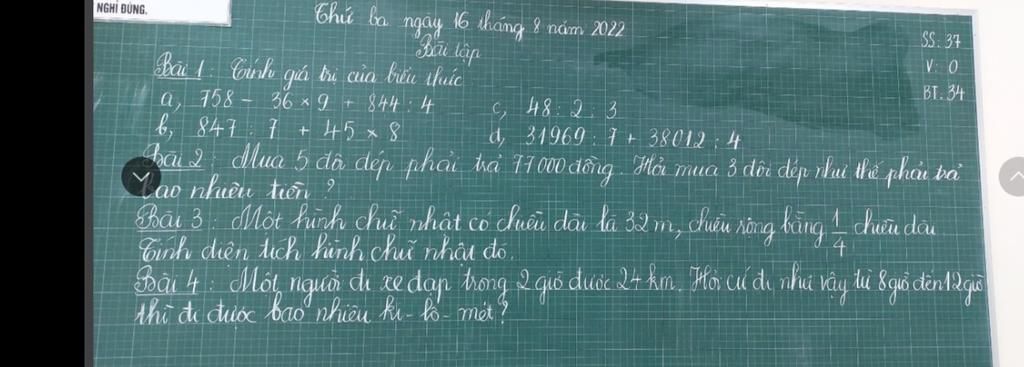 NGHỈ ĐÚNG.
Thứ ba ngày 16 tháng 8 năm 2022
Bài tập
SS: 37
V: 0
BT: 34
Bài 1: Tính giá trị của biểu thức
a, 758 - 36 × 9 + 844 : 4
c, 48 : 2 : 3
b, 847 : 7 + 45 × 8
d, 31969 : 7 + 38012 : 4
Bài 2: Mua 5 đôi dép phải trả 77000 đồng. Hỏi mua 3 đôi dép như thế phải trả
bao nhiêu tiền ?
Bài 3: Một hình chữ nhật có chiều dài là 32 m, chiều rộng bằng 1/4 chiều dài
Tính diện tích hình chữ nhật đó.
Bài 4: Một người đi xe đạp trong 2 giờ được 24 km. Hỏi cứ đi như vậy từ 8 giờ đến 12 giờ
thì đi được bao nhiêu ki-lô-mét?